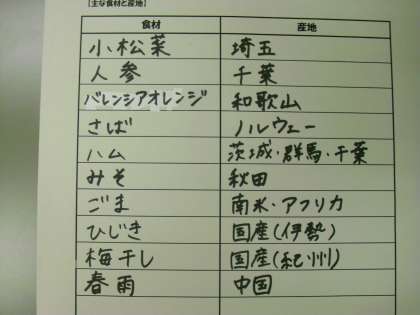 【主な食材と産地】
食材 産地
小松菜 埼玉
人参 千葉
バレンシアオレンジ 和歌山
さば ノルウェー
ハム 茨城・群馬・千葉
みそ 秋田
ごま 南米・アフリカ
ひじき 国産(伊勢)
梅干し 国産(紀州)
春雨 中国